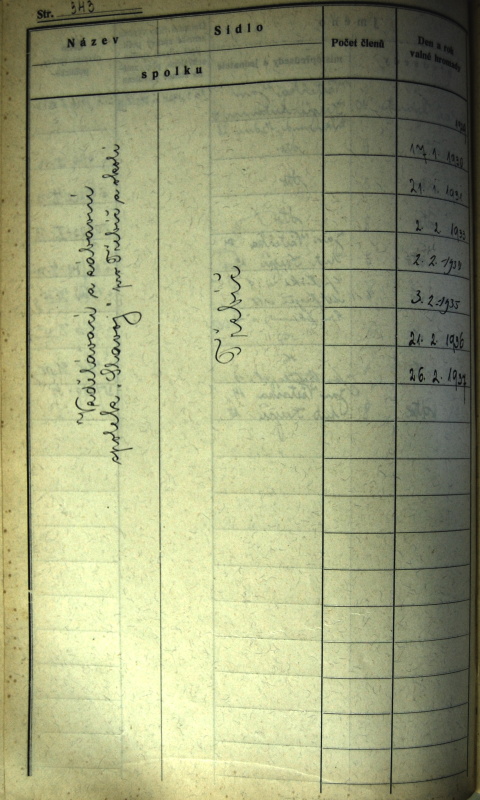 Str. 343
Název
Sídlo
spolku
Počet členů
Den a rok
valné hromady
Vzdělávací a zábavní
spolek „Slavoj" pro Třebíč a okolí
Třebíč
17. 1. 1932
21. 1. 1931
2. 2. 1933
2. 2. 1934
3. 2. 1935
21. 2. 1936
26. 2. 1937